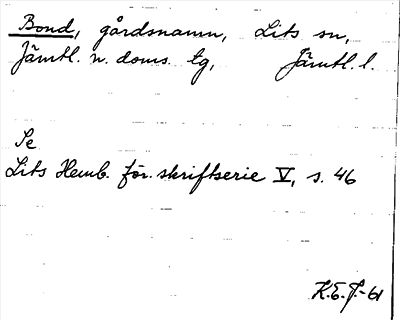 Bond, gårdsnamn, Lits sn,
Jämtl. n. doms. tg, Jämtl. l.
Se
Lits Hemb. för. skriftserie V, s. 46
K.E.F.-61